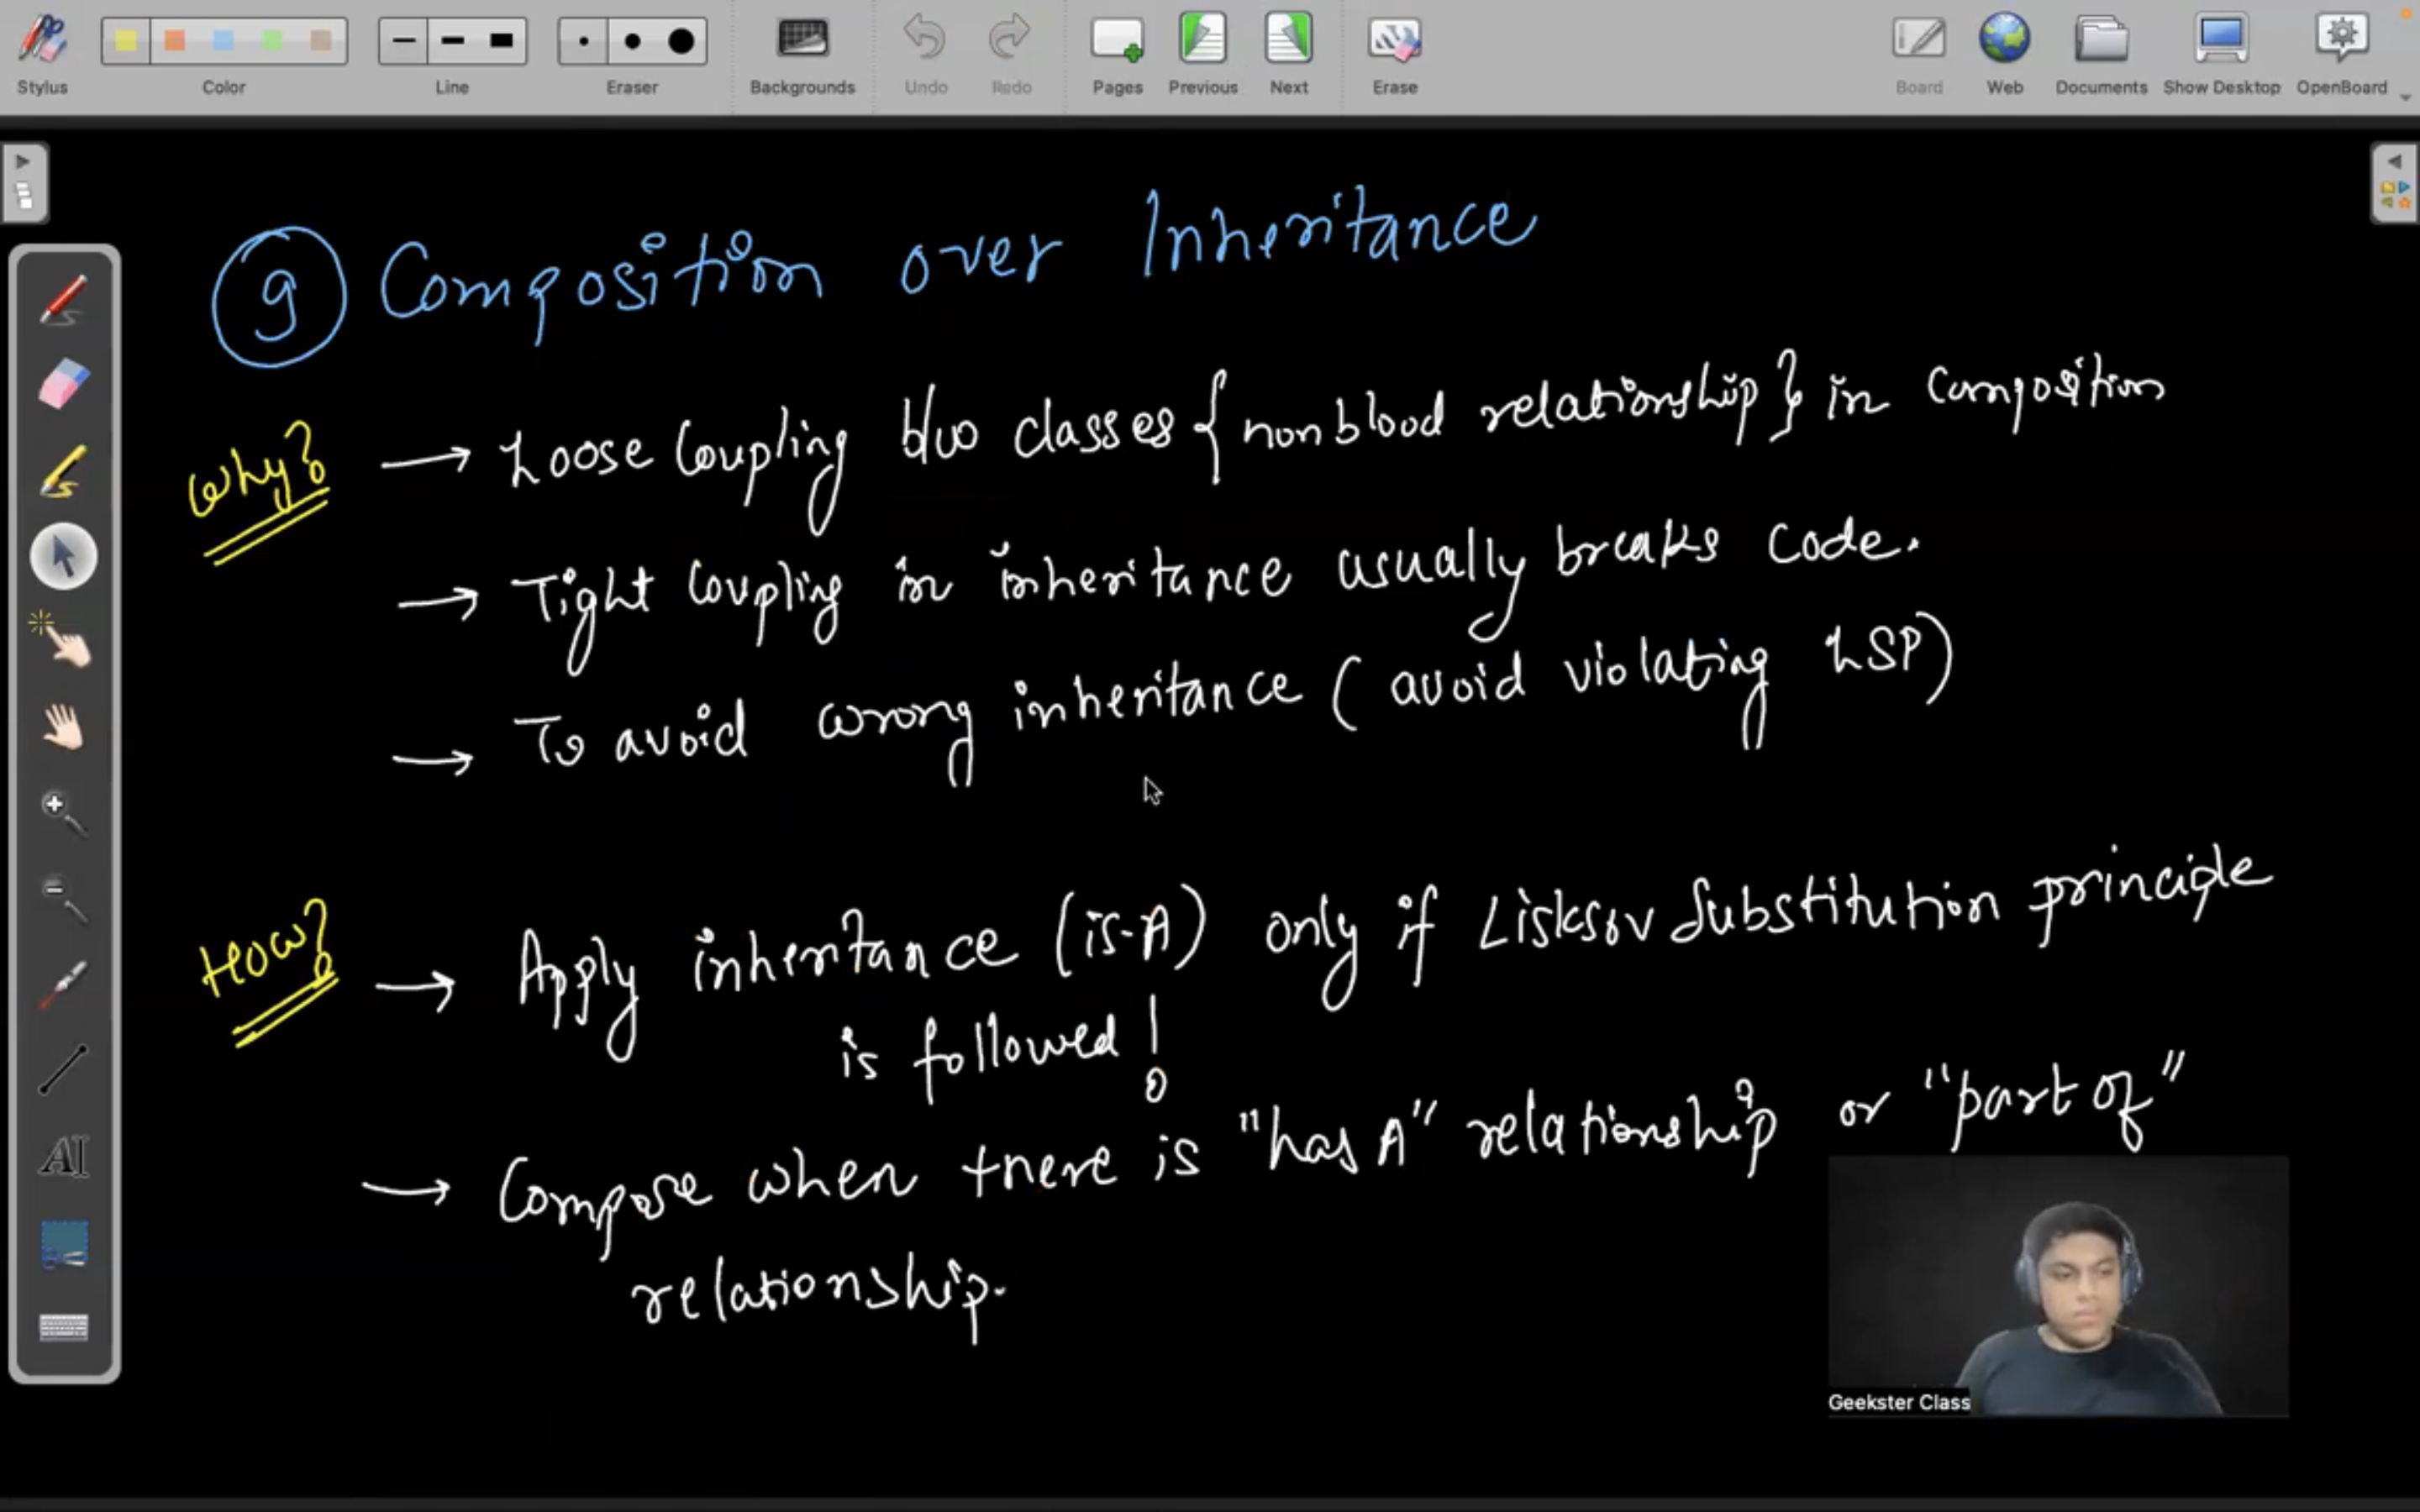 Stylus Color Line Eraser Backgrounds Undo Redo Pages Previous Next Erase Board Web Documents Show Desktop OpenBoard
9 Composition over Inheritance
Why? → Loose Coupling b/w classes { non blood relationship } in composition
→ Tight Coupling in inheritance usually breaks code.
→ To avoid wrong inheritance ( avoid violating LSP)
How? → Apply inheritance (is-A) only if Lisksov Substitution principle
is followed !
→ Compose when there is "has A" relationship or "part of"
relationship.
AI
Geekster Class